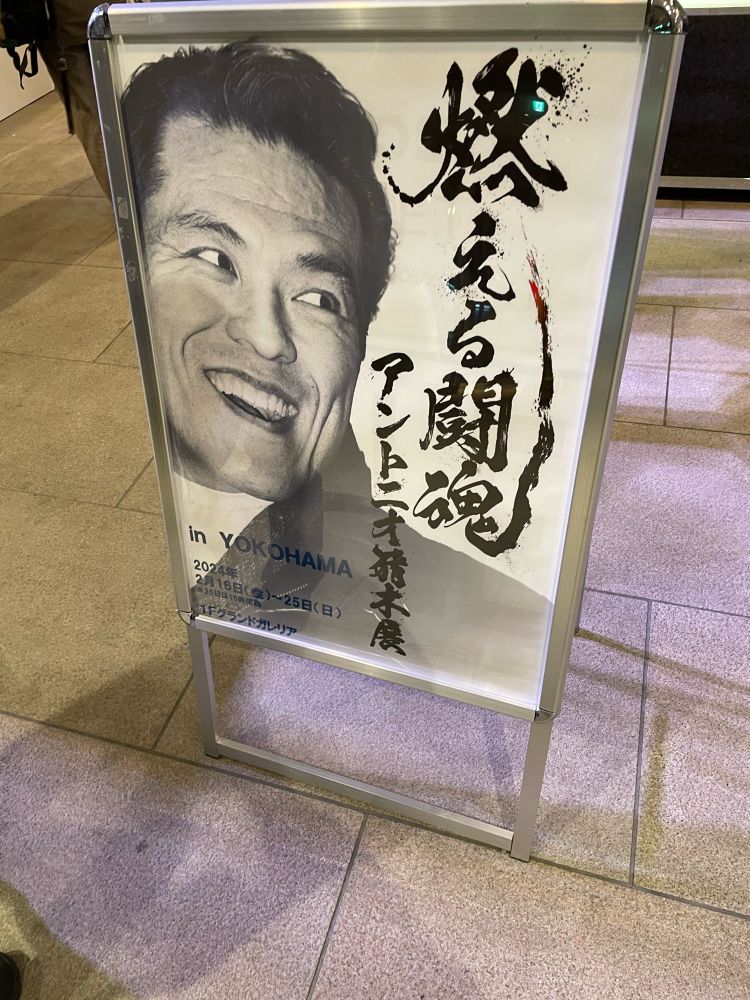 燃える闘魂
アントニオ猪木展
in YOKOHAMA
2024年
2月16日(金)~25日(日)
※25日は16時閉館
1Fグランドガレリア